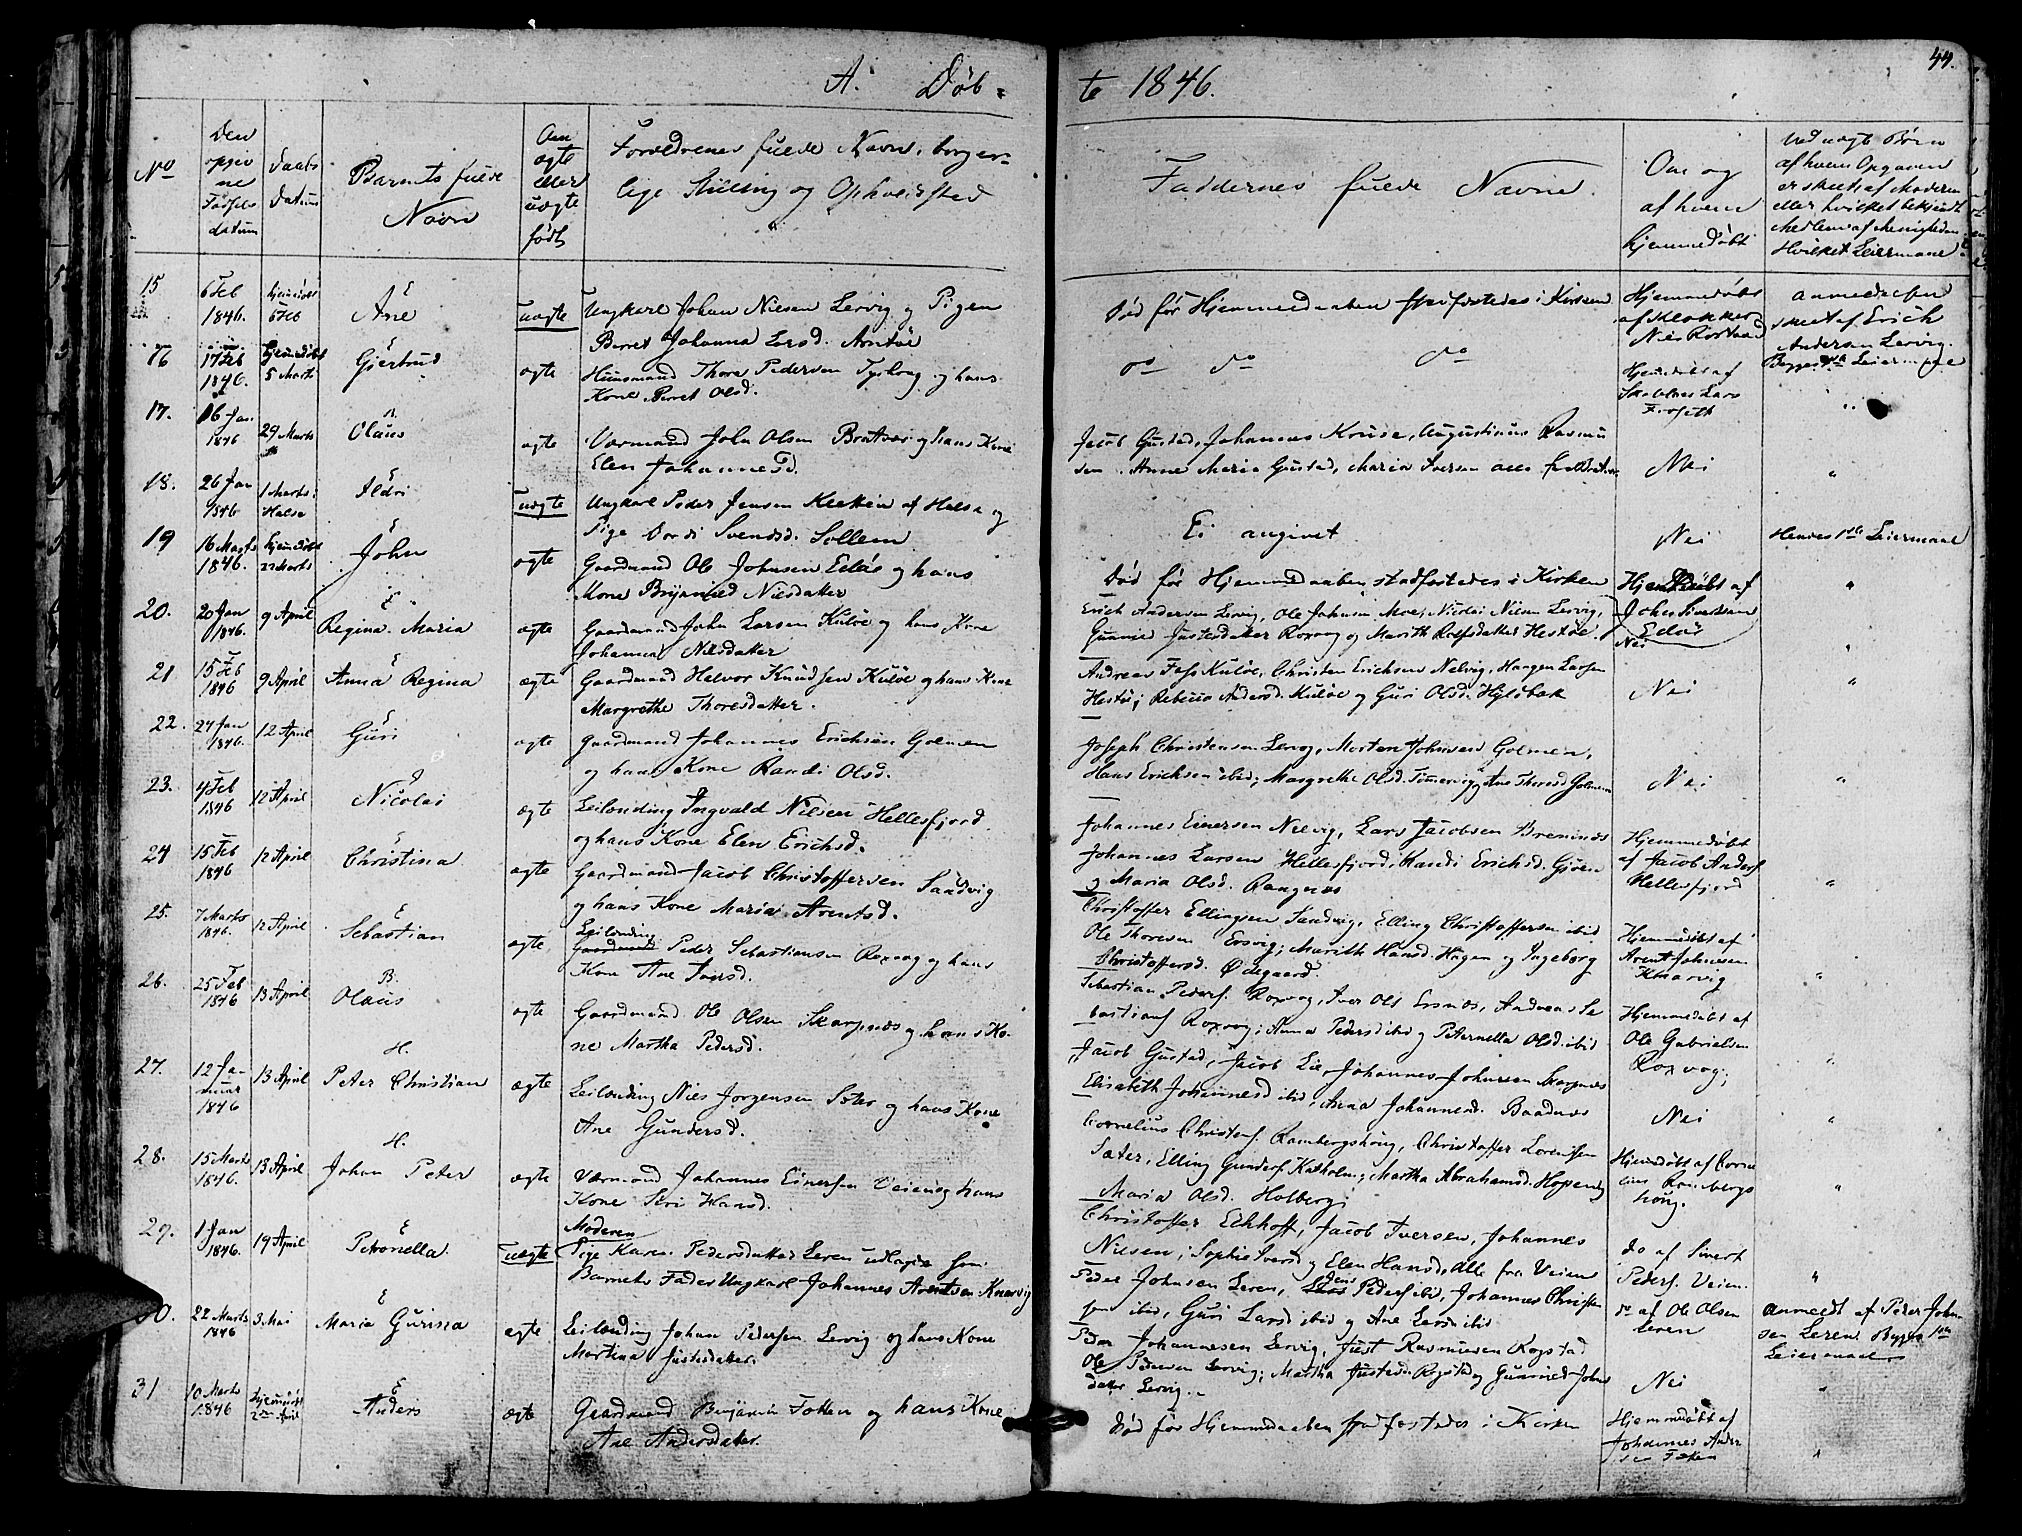 A. Døb=
te 1846.
44.
No
Den opgivne Fødselsdatum
Daabs Datum
Barnets fulde Navn
Om ægte eller uægte født
Forældrenes fulde Navn, borgerlige Stilling og Opholdssted
Faddernes fulde Navne.
Om og af hvem hjemmedøbt
Ved uægt Børn af hvem Opgaven er skeet, af Moderen eller hvilket bekjendt Medlem af Menigheden. Hvilket Leiermaal
15
6 Feb 1846.
hjemdøbt 6 Feb
E
Ane
uægte
Ungkarl Johan Nielsen Lervig og Pigen
Beret Johanna Larsd. Arntøe
Død før Hjemmedaaben stadfæstedes i Kirken
Hjemmedøbt af Klokker Niels
Anmeldelsen skeet af Erich Andersen Lervig. Begges Leiermaal
16
17 Feb 1846.
hjemdøbt 5 Marts
E
Gjertrud
ægte
Huusmand Thore Pedersen og hans
Kone Beret Olsd.
do do do
Hjemdøbt af Skoleholder Lars
"
17.
16 Jan 1846
29 Marts
Olaus
ægte
Værmand John Olsen Bratvær og hans Kone
Elen Johannesd.
Jacob Gustad, Johannes Kruse, Augustinus Rasmu
sen, Anne Maria Gustad, Maria Iversen alle fra Bratvær
Nei
"
18.
26 Jan 1846
1 Marts i Halse
E
Ildri
uægte
Ungkarl Peder Jensen Kletten af Halse og
Pige Dordi Svendsd. Sollem
Ei angivet
Nei
Hendes 1ste Leiermaal
19
16 Marts 1846.
hjemdøbt 22 Marts
E
John
ægte
Gaardmand Ole Johnsen Edøe og hans
Kone Brynild Nilsdatter
Død før Hjemmedaaben stadfæstedes i Kirken
Hjemmedøbt af John Sivertsen Edøe
"
20.
20 Jan 1846.
9 April
E
Regina Maria
ægte
Gaardmand John Larsen Kuløe og hans Kone
Johanna Nilsdatter
Erich Andersen Lervig, Ole Johnsen Moe, Nicolai Nilsen Lervig,
Gunnild Justesdatter Roxvog og Marith Rolfsdatter Hestøe
Nei
"
21
15 Feb 1846
9 April
E
Anna Regina
ægte
Gaardmand Halvor Knudssen Kuløe og hans Kone
Margrethe Thoresdatter.
Andreas Foss Kuløe, Christen Erichsen Nelvig, Haagen Larsen
Hestøe, Rebecca Andersd. Kuløe og Guri Olsd. Hjelsbak
Nei
"
22.
24 Jan 1846.
12 April
E
Guri
ægte
Gaardmand Johannes Erichsen Golmen
og hans Kone Randi Olsd.
Joseph Christensen Lervog, Morten Johnsen Golmen,
Hans Erichsen ibid; Margrethe Olsd. Tømmervig og Ane Thoresd Golmen
Nei
"
23.
4 Feb 1846
12 April
Nicolai
ægte
Leilænding Ingvald Nilsen Hellesfjord
og hans Kone Elen Erichsd.
Johannes Einersen Nelvig, Lars Jacobsen Bremnæs
Johannes Larsen Hellesfjord, Randi Erichsd. Gjøen
og Maria Olsd. Rangnæs
Hjemmedøbt af Jacob Anders Hellesfjord
"
24
15 Feb 1846
12 April
E
Christina
ægte
Gaardmand Jacob Christoffersen Sandvig
og hans Kone Maria Arentsd.
Christoffer Ellingsen Sandvig, Elling Christoffersen ibid
Ole Thoresen Ersvig; Marith Hansd. Hagen og Ingeborg
Christoffersd. Ødegaard
Hjemmedøbt af Arent Johnsen Knarvig
"
25.
7 Marts 1846.
12 April
E
Sebastian
ægte
Leilænding Peder Sebastiansen Roxvog og hans
Kone Ane Iversd.
Sebastian Peders. Roxvog, Iver Ols Ersnæs, Andreas Se
bastians Roxvog; Anna Pedersd ibid og Peternella Olsd. ibid
Hjemmedøbt af Ole Gabrielsen Roxvog;
"
26.
25 Feb 1846
13 April
B.
Olaus
ægte
Gaardmand Ole Olsen Skarpnæs og hans Ko-
ne Martha Pedersd.
Jacob Gustad, Jacob Lie, Johannes Johnsen Skarpnæs
Elisabeth Johannesd ibid, Anna Johannesd. Baadnæs
Nei
"
27.
12 Januar 1846
13 April
H.
Peter Christian
ægte
Leilænding Niels Jørgensen Sæter og hans Kone
Ane Gundersd.
Cornelius Christens. Rambergshoug, Christoffer Lorentsen
Sæter, Elling Gunders Katholm; Martha Abrahamsd. Hopen og
Maria Olsd. Holberg;
Hjemdøbt af Cornelius Rambergshoug.
"
28.
15 Marts 1846.
13 April
H.
Johan Peter
ægte
Værmand Johannes Einersen Veien og hans
Kone Siri Hansd.
Christoffer Eckhoff, Jacob Iversen, Johannes
Nilsen; Sophie Iversd og Elen Hansd, Alle fra Veien
do af Sivert Peders. Veien.
"
29.
1 Jan 1846.
19 April
E
Petronella.
uægte
Moderen
Pige Karen Pedersdatter Leren udlagde som
Barnets Fader Ungkarl Johannes Arentsen Knarvig
Peder Johnsen Leren, Jens Peders ibid, Johannes Christen
sen ibid, Guri Larsd ibid og Ane Larsd ibid
do af Ole Olsen Leren
anmeldt af Peder Johnsen Leren Begges 1ste Leiermaal
30.
22 Marts 1846
3 Mai
E
Maria Gurina
ægte
Leilænding Johan Pedersen Lervig og hans Kone
Martina Justesdatter.
Peder Johannesen Lervig, Just Rasmusen Rogstad
Ole Pedersen Lervig; Martha Justesd. Rogstad og Gunnild Johns
datter Lervig.
Nei
"
31
10 Marts 1846
hjemmedøbt 2den April
E
Anders
ægte
Gaardmand Benjamin Fokken og hans Kone
Ane Andersdatter.
Død før Hjemmedaaben stadfæstedes i Kirken
Hjemmedøbt af Johannes Andersen
"